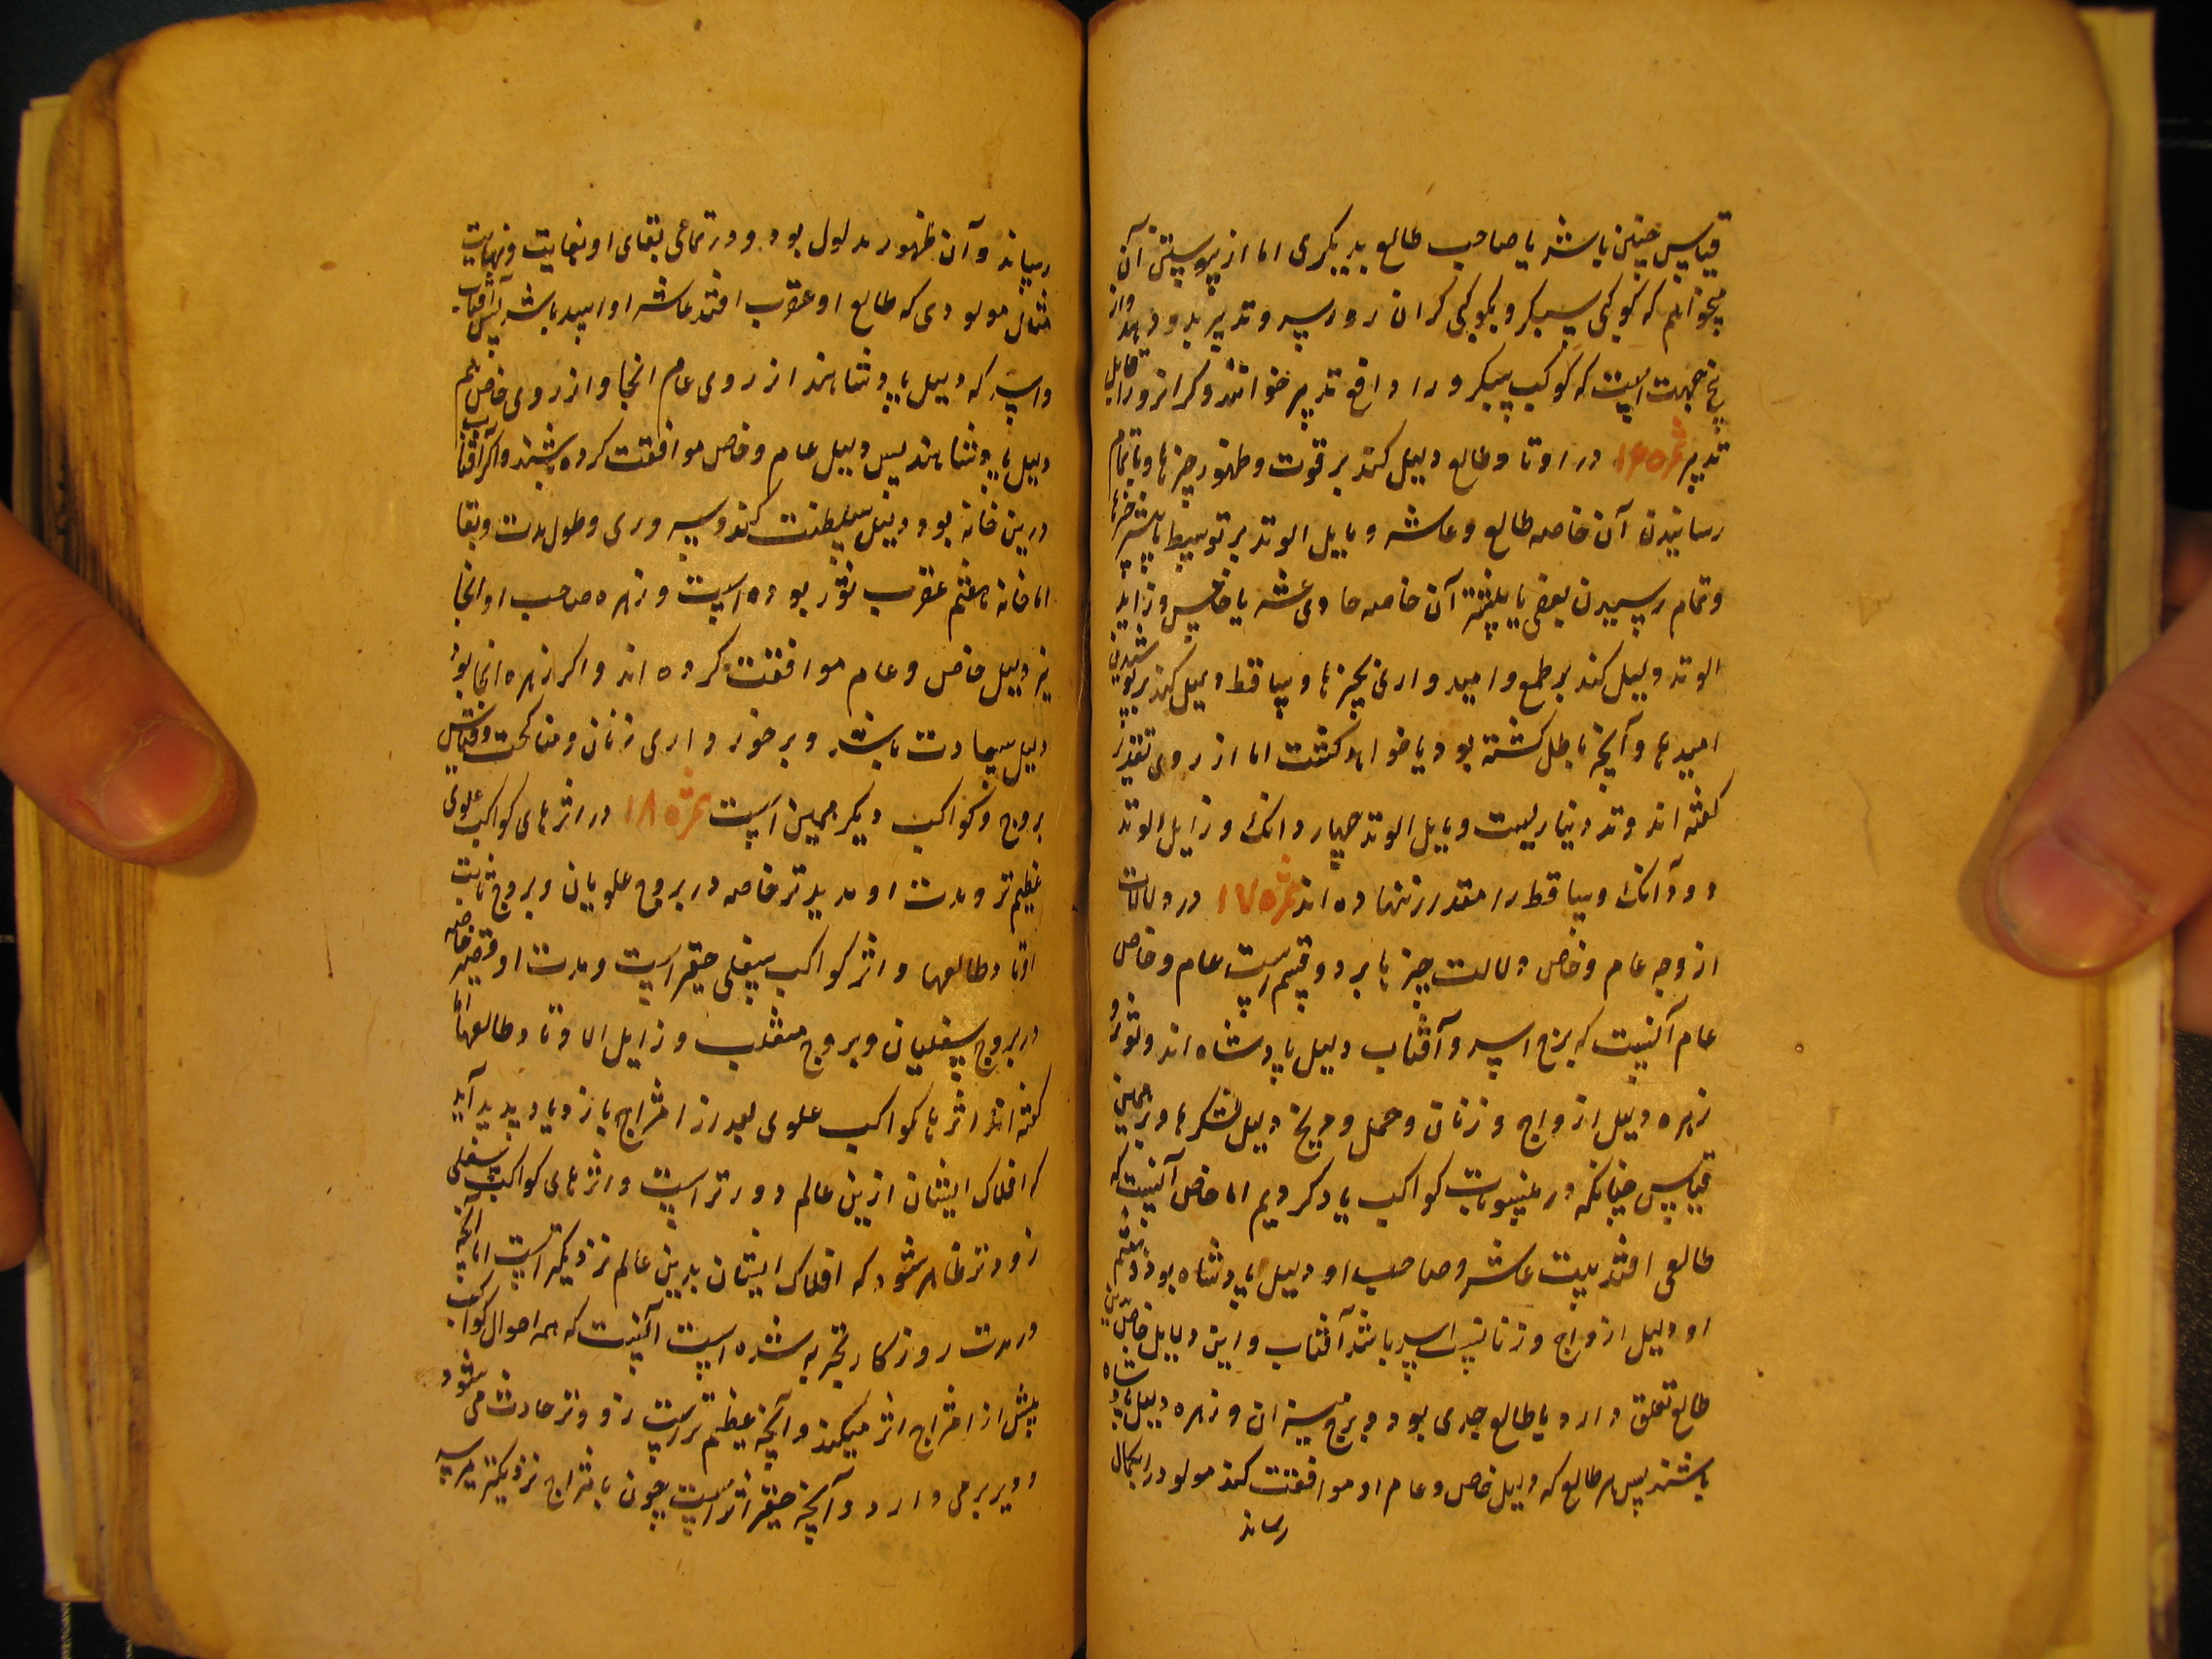 قیاس چنین باشد یا صاحب طالع بدیگری اما از پیوستن آن
میخواهم که کوکبی سبکرو بکوکبی گران رو رسد و تدبیر بدو دهد و از
جهت است که کوکب سبکرو را دافع تدبیر خوانند و گرانرو را قابل
تدبیر ثمره ۱۶ در اوتاد و طالع دلیل کند بر قوت و ظهور چیزها و تمام
رسانیدن آن خاصه طالع و عاشر و مایل الوتد بر توسط باشد چیزها
و تمام رسیدن بعضی یا بیشتر آن خاصه حادی عشر یا خامس و زایل
الوتد دلیل کند بر طمع و امیدواری بچیزها و ساقط دلیل کند بر نومید شدنی
امیدها و آنچه باطل گشته بود یا خواهد گشت اما از روی تقدیر
گفته اند وتد دیناریست و مایل الوتد چهار دانگ و زایل الوتد
دو دانگ و ساقط را مقدار ننهاده اند ثمره ۱۷ در دلالات
از وجه عام و خاص دلالت چیزها بر دو قسم است عام و خاص
عام آنست که برج اسد و آفتاب دلیل پادشاه اند و ثور و
زهره دلیل ازواج و زنان و حمل و مریخ دلیل لشکرها و برهمین
قیاس چنانکه در منسوبات کواکب یاد کردیم اما خاص آنست که
طالعی افتد بیت عاشر و صاحب او دلیل پادشاه بود و هفتم
او دلیل ازواج و زنان پس اسد باشد آفتاب و این دلایل خاص بدین
طالع تعلق دارد یا طالع جدی بود و برج میزان و زهره دلیل پادشاه
باشند پس هر طالع که دلیل خاص و عام او موافقت کند مولود را بکمال
رساند
رساند و آن ظهور مدلول بود و در تمامی بقای او بغایت و نهایت
مثال مولودی که طالع او عقرب افتد عاشر او اسد باشد پس آفتاب
و اسد که دلیل پادشاهند از روی عام اینجا و از روی خاص هم
دلیل پادشاهند پس دلیل عام و خاص موافقت کرده باشند و اگر آفتاب
درین خانه بود دلیل سلطنت کند و سروری و طول مدت و بقا
اما خانه هفتم عقرب ثور بوده است و زهره صاحب او اینجا
نیز دلیل خاص و عام موافقت کرده اند و اگر زهره اینجا بود
دلیل سعادت باشد و برخورداری زنان و مناکحت و قیاس
بروج و کواکب دیگر همین است ثمره ۱۸ در اثرهای کواکب علوی
عظیم تر و مدت او مدیدتر خاصه در بروج علویان و بروج ثابت
اوتاد طالعها و اثر کواکب سفلی حقیر است و مدت او قصیر خاصه
در بروج سفلیان و بروج منقلب و زایل الاوتاد طالعها اما
گفته اند اثرها کواکب علوی بعد از امتزاج باز دیاد پدید آید
که افلاک ایشان ازین عالم دورتر است و اثرهای کواکب سفلی
زودتر ظاهر شود که افلاک ایشان بدین عالم نزدیکتر است اما آنچه
در مدت روزگار تجربه شده است آنست که همه احوال کواکب
پیش از امتزاج اثر میکند و آنچه عظیم تر است زودتر حادث می شود
و دیر برمی دارد و آنچه حقیر اثر است چون بامتزاج نزدیکتر میرسد